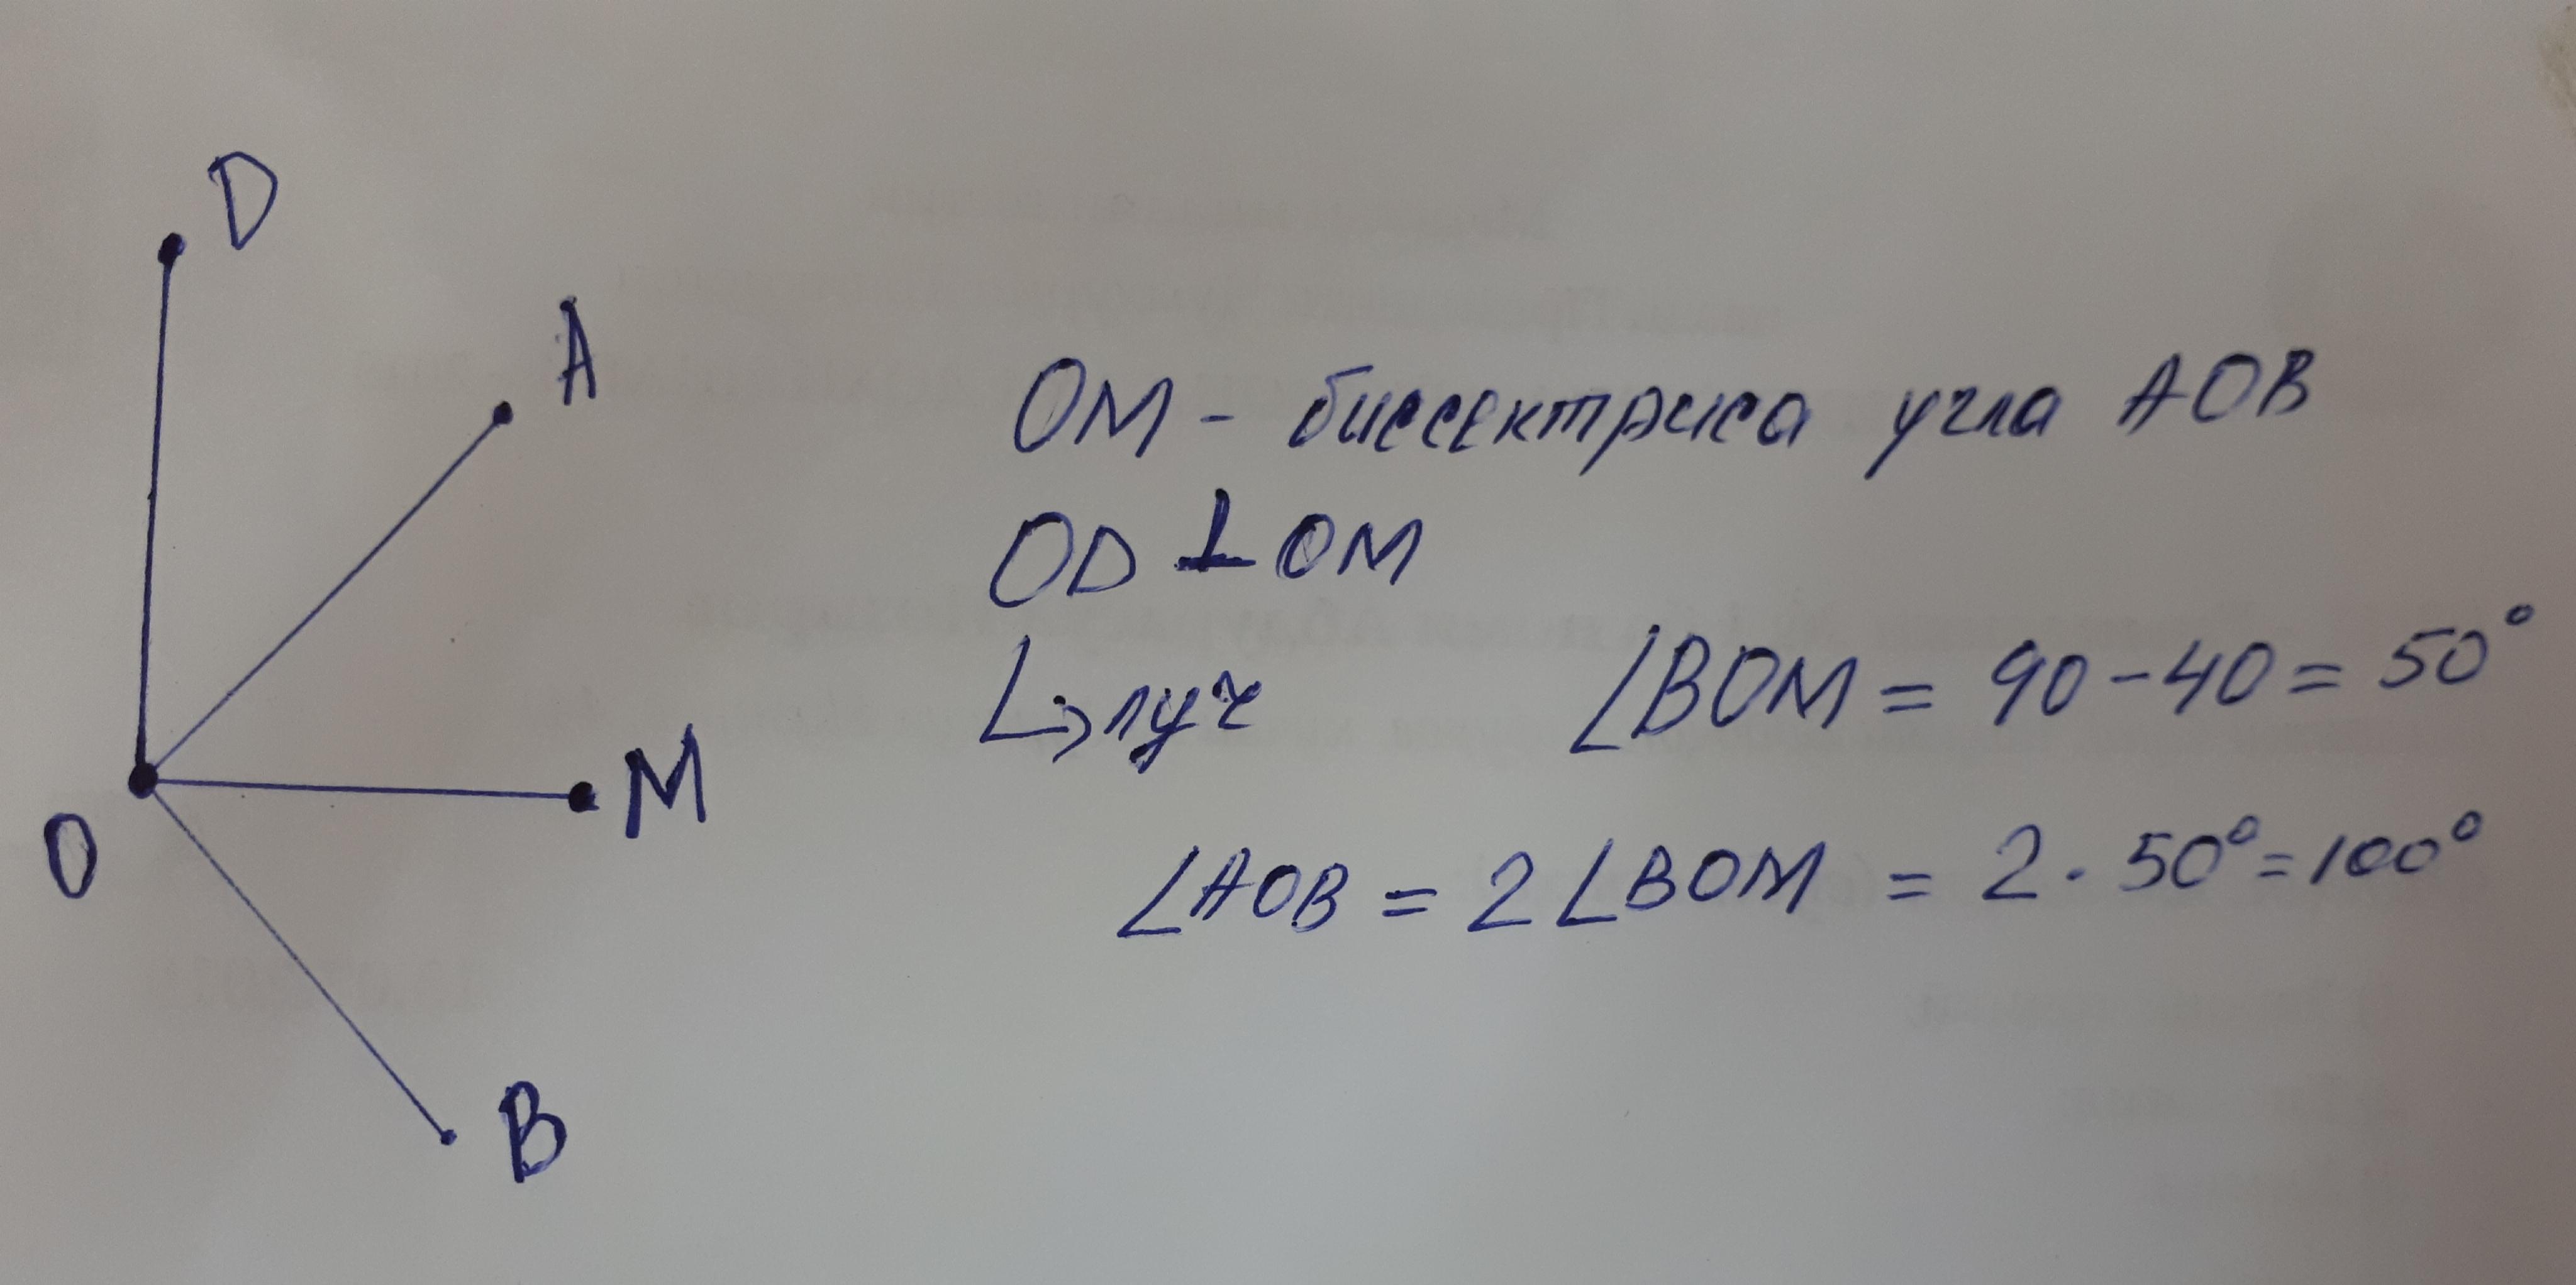 D
A
OM - биссектриса угла AOB
OD ⊥ OM
луч
∠BOM = 90 - 40 = 50°
M
O
∠AOB = 2∠BOM = 2 · 50° = 100°
B